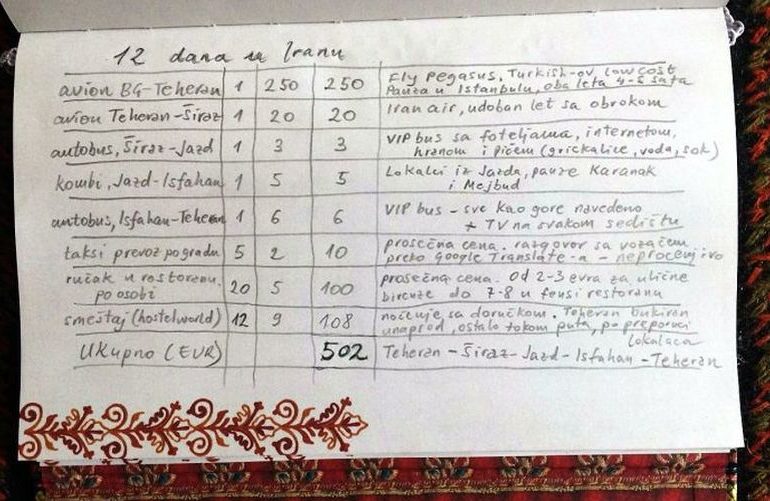 12 dana u Iranu
avion BG-Teheran 1 250 250 Fly Pegasus, Turkish-ov low cost
Pauza u Istanbulu, oba leta 4-5 sata
avion Teheran-Širaz 1 20 20 Iran air, udoban let sa obrokom
autobus, Širaz-Jazd 1 3 3 VIP bus sa foteljama, internetom,
hranom i pićem (grickalice, voda, sok)
kombi, Jazd-Isfahan 1 5 5 Lokalci iz Jazda, pauze Karanak
i Mejbud
autobus, Isfahan-Teheran 1 6 6 VIP bus - sve kao gore navedeno
+ TV na svakom sedištu
taksi prevoz po gradu 5 2 10 prosečna cena. razgovor sa vozačem
preko Google Translate-a - neprocenjivo
ručak u restoranu, 20 5 100 prosečna cena. Od 2-3 evra za ulične
po osobi bircuze do 7-8 u fensi restoranu
smeštaj (hostelworld) 12 9 108 noćenje sa doručkom. Teheran bukiran
unapred, ostalo tokom puta, po preporuci
lokalaca
Ukupno (EUR) 502 Teheran-Širaz-Jazd-Isfahan-Teheran